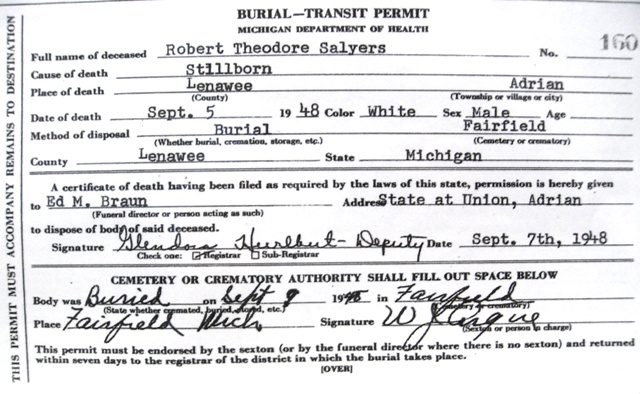 BURIAL—TRANSIT PERMIT
MICHIGAN DEPARTMENT OF HEALTH
Full name of deceased Robert Theodore Salyers No. 160
Cause of death Stillborn
Place of death Lenawee Adrian
(County) (Township or village or city)
Date of death Sept. 5 1948 Color White Sex Male Age
Method of disposal Burial Fairfield
(Whether burial, cremation, storage, etc.) (Cemetery or crematory)
County Lenawee State Michigan
A certificate of death having been filed as required by the laws of this state, permission is hereby given
to Ed M. Braun Address State at Union, Adrian
(Funeral director or person acting as such)
to dispose of body of said deceased.
Signature Glendora Hurlbut - Deputy Date Sept. 7th, 1948
Check one: Registrar Sub-Registrar
CEMETERY OR CREMATORY AUTHORITY SHALL FILL OUT SPACE BELOW
Body was Buried on Sept 9 1948 in Fairfield
(State whether cremated, buried, stored, etc.) (Cemetery or crematory)
Place Fairfield Mich Signature W
(Sexton or person in charge)
This permit must be endorsed by the sexton (or by the funeral director where there is no sexton) and returned
within seven days to the registrar of the district in which the burial takes place.
[OVER]
THIS PERMIT MUST ACCOMPANY REMAINS TO DESTINATION